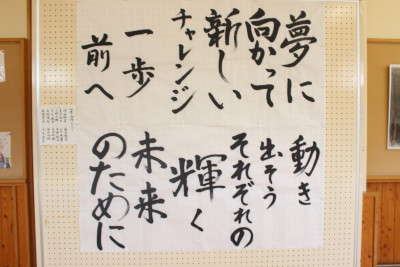 夢に
向かって
新しい
チャレンジ
一歩
前へ
動き
出そう
それぞれの
輝く
未来
のために